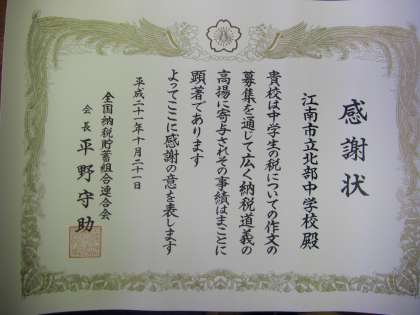 感謝状
江南市立北部中学校殿
貴校は中学生の税についての作文の
募集を通して広く納税道義の
高揚に寄与されその事績はまことに
顕著であります
よってここに感謝の意を表します
平成二十一年十月二十一日
全国納税貯蓄組合連合会
会長 平野守助